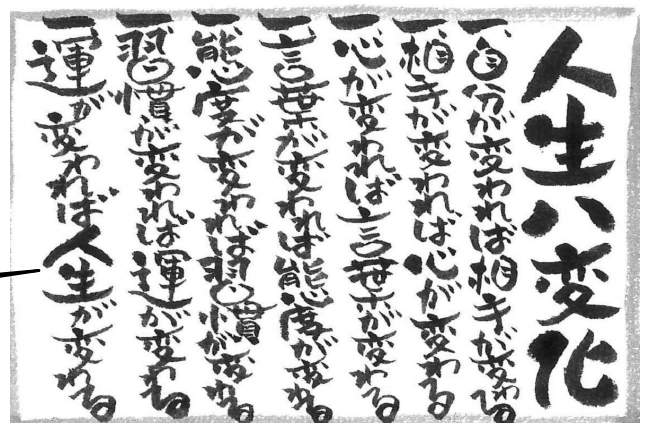 人生八変化
一自分が変われば相手が変わる
一相手が変われば心が変わる
一心が変われば言葉が変わる
一言葉が変われば態度が変わる
一態度が変われば習慣が変わる
一習慣が変われば運が変わる
一運が変われば人生が変わる